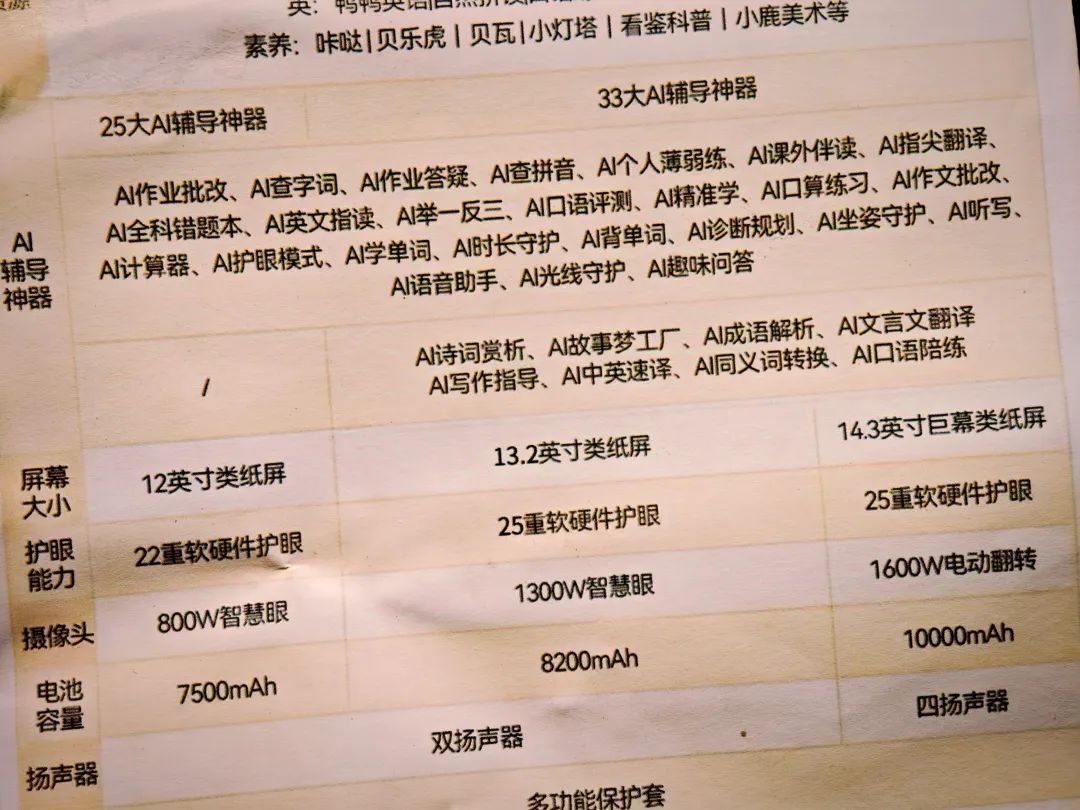 资源
英：鸭鸭英语|自然拼读
素养：咔哒|贝乐虎|贝瓦|小灯塔|看鉴科普|小鹿美术等
25大AI辅导神器 33大AI辅导神器
AI作业批改、AI查字词、AI作业答疑、AI查拼音、AI个人薄弱练、AI课外伴读、AI指尖翻译、
AI全科错题本、AI英文指读、AI举一反三、AI口语评测、AI精准学、AI口算练习、AI作文批改、
AI计算器、AI护眼模式、AI学单词、AI时长守护、AI背单词、AI诊断规划、AI坐姿守护、AI听写、
AI语音助手、AI光线守护、AI趣味问答
AI
辅导
神器
/
AI诗词赏析、AI故事梦工厂、AI成语解析、AI文言文翻译
AI写作指导、AI中英速译、AI同义词转换、AI口语陪练
屏幕
大小
12英寸类纸屏 13.2英寸类纸屏 14.3英寸巨幕类纸屏
护眼
能力
22重软硬件护眼 25重软硬件护眼 25重软硬件护眼
摄像头 800W智慧眼 1300W智慧眼 1600W电动翻转
电池
容量
7500mAh 8200mAh 10000mAh
扬声器 双扬声器 四扬声器
多功能保护套